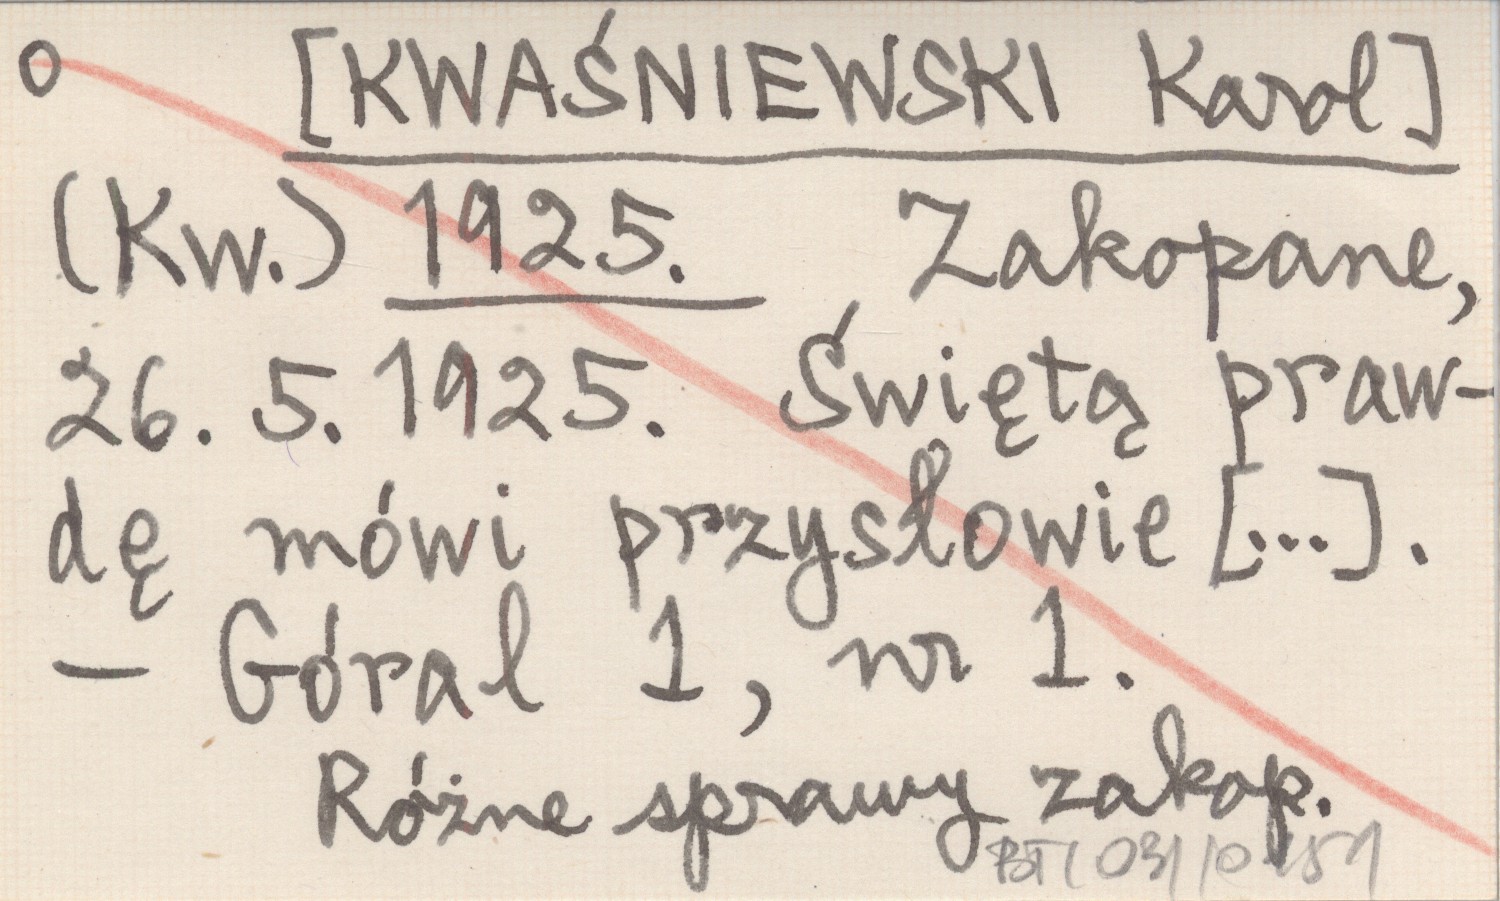 o [KWAŚNIEWSKI Karol]
(Kw.) 1925. Zakopane,
26. 5. 1925. Świętą praw-
dę mówi przysłowie [...].
— Góral 1, nr 1.
Różne sprawy zakop.